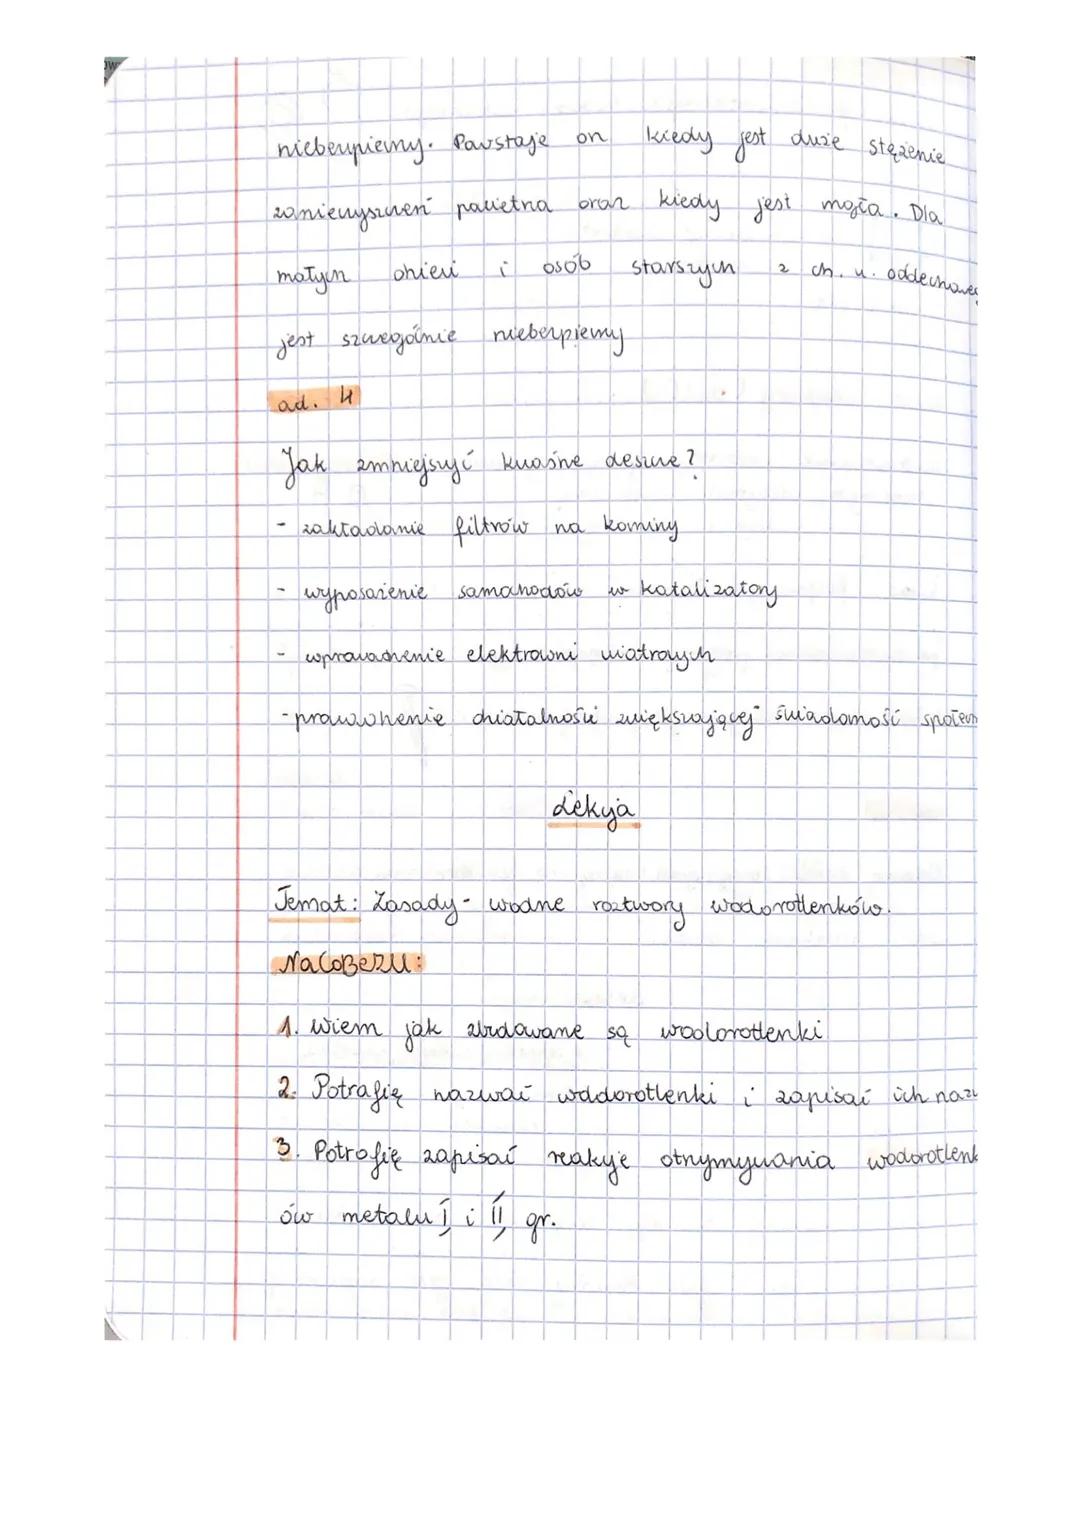 niebezpieczny. Powstaje on kiedy jest duże stężenie
zanieczyszczeń powietrza oraz kiedy jest mgła. Dla
małych dzieci i osób starszych z ch. u. oddechoweg
jest szczególnie niebezpieczny
ad. 4
Jak zmniejszyć kwaśne deszcze?
- zakładanie filtrów na kominy
- wyposażenie samochodów w katalizatory
- wprowadzenie elektrowni wiatrowych
- prowadzenie działalności zwiększającej świadomość społecz
Lekcja
Temat: Zasady - wodne roztwory wodorotlenków.
NaCoBeZU:
1. Wiem jak zbudowane są wodorotlenki
2. Potrafię nazwać wodorotlenki i zapisać ich nazw
3. Potrafię zapisać reakcje otrzymywania wodorotlenk
ów metalu I i II gr.